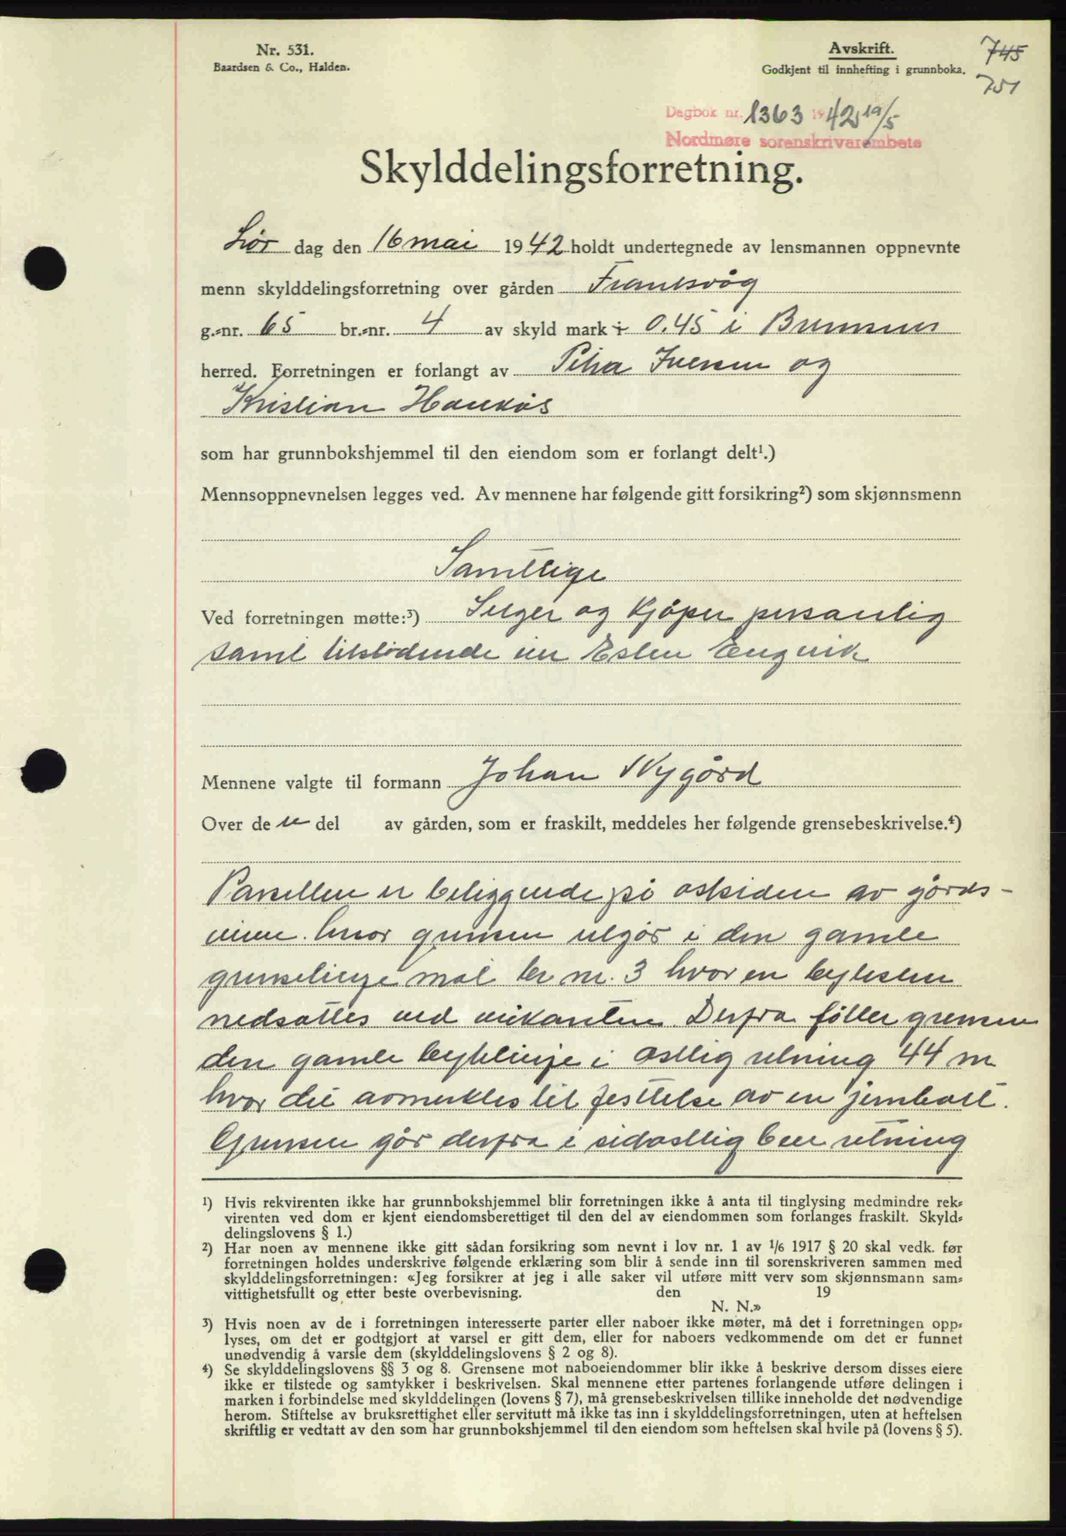 Nr. 531.
Baardsen & Co., Halden.
Avskrift.
Godkjent til innhefting i grunnboka.
745
751
Dagbok nr. 1363 1942 19/5
Nordmøre sorenskriverembete
Skylddelingsforretning.
Lør dag den 16 mai 1942 holdt undertegnede av lensmannen oppnevnte
menn skylddelingsforretning over gården Frantsvåg
g.-nr. 65 br.-nr. 4 av skyld mark i 0.45 i Bremsnes
herred. Forretningen er forlangt av Petra Iversen og
Kristian Haukås
som har grunnbokshjemmel til den eiendom som er forlangt delt¹.)
Mennsoppnevnelsen legges ved. Av mennene har følgende gitt forsikring²) som skjønnsmenn
Samtlige
Ved forretningen møtte:³) Selger og kjøper personlig
samt tilstødende eier Esten Engvik
Mennene valgte til formann Johan Nygård
Over de n del av gården, som er fraskilt, meddeles her følgende grensebeskrivelse.⁴)
Parsellen er beliggende på østsiden av gårds-
veien hvor grensen utgår i den gamle
grenselinje mot br nr. 3 hvor en bytesten
nedsattes ved veikanten. Derfra følter grensen
den gamle bytelinje i østlig retning 44 m
hvor det avmerktes til festtelse av en jernbolt.
Grensen går derfra i sidøstlig ben retning
¹) Hvis rekvirenten ikke har grunnbokshjemmel blir forretningen ikke å anta til tinglysing medmindre rek-
virenten ved dom er kjent eiendomsberettiget til den del av eiendommen som forlanges fraskilt. Skyld-
delingslovens § 1.)
²) Har noen av mennene ikke gitt sådan forsikring som nevnt i lov nr. 1 av 1/6 1917 § 20 skal vedk. før
forretningen holdes underskrive følgende erklæring som blir å sende inn til sorenskriveren sammen med
skylddelingsforretningen: «Jeg forsikrer at jeg i alle saker vil utføre mitt verv som skjønnsmann sam-
vittighetsfullt og etter beste overbevisning. den 19
N. N.»
³) Hvis noen av de i forretningen interesserte parter eller naboer ikke møter, må det i forretningen opp-
lyses, om det er godtgjort at varsel er gitt dem, eller for naboers vedkommende om det er funnet
unødvendig å varsle dem (skylddelingslovens § 2 og 8).
⁴) Se skylddelingslovens §§ 3 og 8. Grensene mot naboeiendommer blir ikke å beskrive dersom disses eiere
ikke er tilstede og samtykker i beskrivelsen. Skal mennene etter partenes forlangende utføre delingen i
marken i forbindelse med skylddelingen (lovens § 7), må grensebeskrivelsen tillike inneholde det nødvendige
herom. Stiftelse av bruksrettighet eller servitutt må ikke tas inn i skylddelingsforretningen, uten at heftelsen
skriftlig er vedtatt av den som har grunnbokshjemmel til den eiendom som heftelsen skal hvile på (lovens § 5).